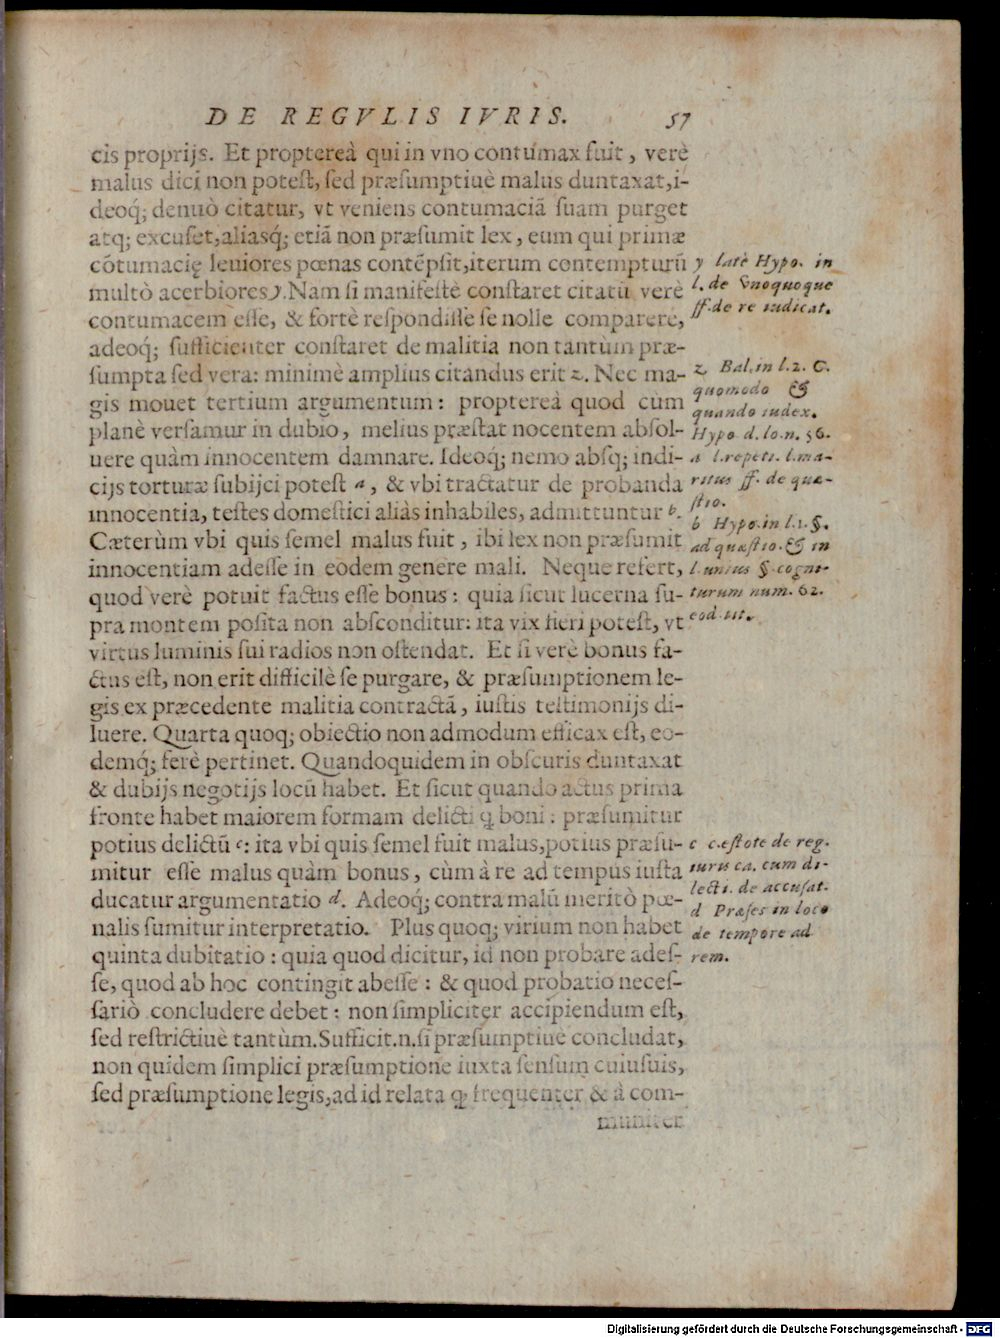 DE REGVLIS IVRIS. 57
cis proprijs. Et propterea̍ qui in vno contumax fuit, verè
malus dici non potest, sed præsumptiuè malus duntaxat, i-
deoq́; denuò citatur, vt veniens contumaciã suam purget
atq; excuset, aliasq́; etiã non præsumit lex, eum qui primæ
cõtumacię leuiores pœnas contẽpsit, iterum contempturũ
multò acerbiores y. Nam si manifestè constaret citatũ verè
contumacem esse, & fortè respondisse se nolle comparere,
adeoq́; sufficienter constaret de malitia non tantùm præ-
sumpta sed vera: minimè amplius citandus erit z. Nec ma-
gis mouet tertium argumentum: proptereà quod cum
planè versamur in dubio, melius præstat nocentem absol-
uere quàm innocentem damnare. Ideoq́; nemo absq; indi-
cijs torturæ subijci potest a, & vbi tractatur de probanda
innocentia, testes domestici aliàs inhabiles, admittuntur b.
Cæterùm vbi quis semel malus fuit, ibi lex non præsumit
innocentiam adesse in eodem genere mali. Neque refert,
quod verè potuit factus esse bonus: quia sicut lucerna su-
pra montem posita non absconditur: ita vix fieri potest, vt
virtus luminis sui radios non ostendat. Et si verè bonus fa-
ctus est, non erit difficilè se purgare, & præsumptionem le-
gis ex præcedente malitia contractã, iustis testimonijs di-
luere. Quarta quoq; obiectio non admodum efficax est, eo-
demq́; ferè pertinet. Quandoquidem in obscuris duntaxat
& dubijs negotijs locũ habet. Et sicut quando actus prima
fronte habet maiorem formam delicti q̃ boni: præsumitur
potius delictũ c: ita vbi quis semel fuit malus, potius præsu-
mitur esse malus quàm bonus, cùm à re ad tempus iusta
ducatur argumentatio d. Adeoq́; contra malũ meritò pœ-
nalis sumitur interpretatio. Plus quoq; virium non habet
quinta dubitatio: quia quod dicitur, id non probare ades-
se, quod ab hoc contingit abesse: & quod probatio neces-
sariò concludere debet: non simpliciter accipiendum est,
sed restrictiuè tantùm. Sufficit. n. si præsumptiuè concludat,
non quidem simplici præsumptione iuxta sensum cuiusuis,
sed præsumptione legis, ad id relata q̃ frequenter & à com-
muniter
y latè Hypo. in
l. de vnoquoque
ff. de re iudicat.
z Bal. in l. 2. C.
quomodo &
quando iudex.
Hypo d. lo. n. 56.
a l. repeti. l. ma-
ritus ff. de quæ-
stio.
b Hypo. in l. 1. §.
ad quæstio. & in
l. unius § cogni-
turum num. 62.
eod. tit.
c c. estote de reg.
iuris ca. cum di-
lecti. de accusat.
d Præses in loco
de tempore ad
rem.
Digitalisierung gefördert durch die Deutsche Forschungsgemeinschaft - DFG